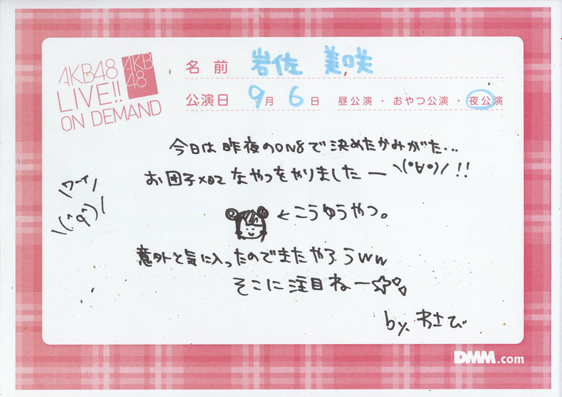 AKB48
LIVE!!
ON DEMAND
AKB
48
名前 岩佐 美咲
公演日 9月 6日 昼公演・おやつ公演・夜公演
今日は昨夜のON8で決めたかみがた…
お団子×2でなやつをやりましたー\(°∀°)/!!
ワーイ
←こうゆうやつ。
意外と気に入ったのでまたやろうww
そこに注目ねー☆
by わさび
DMM.com